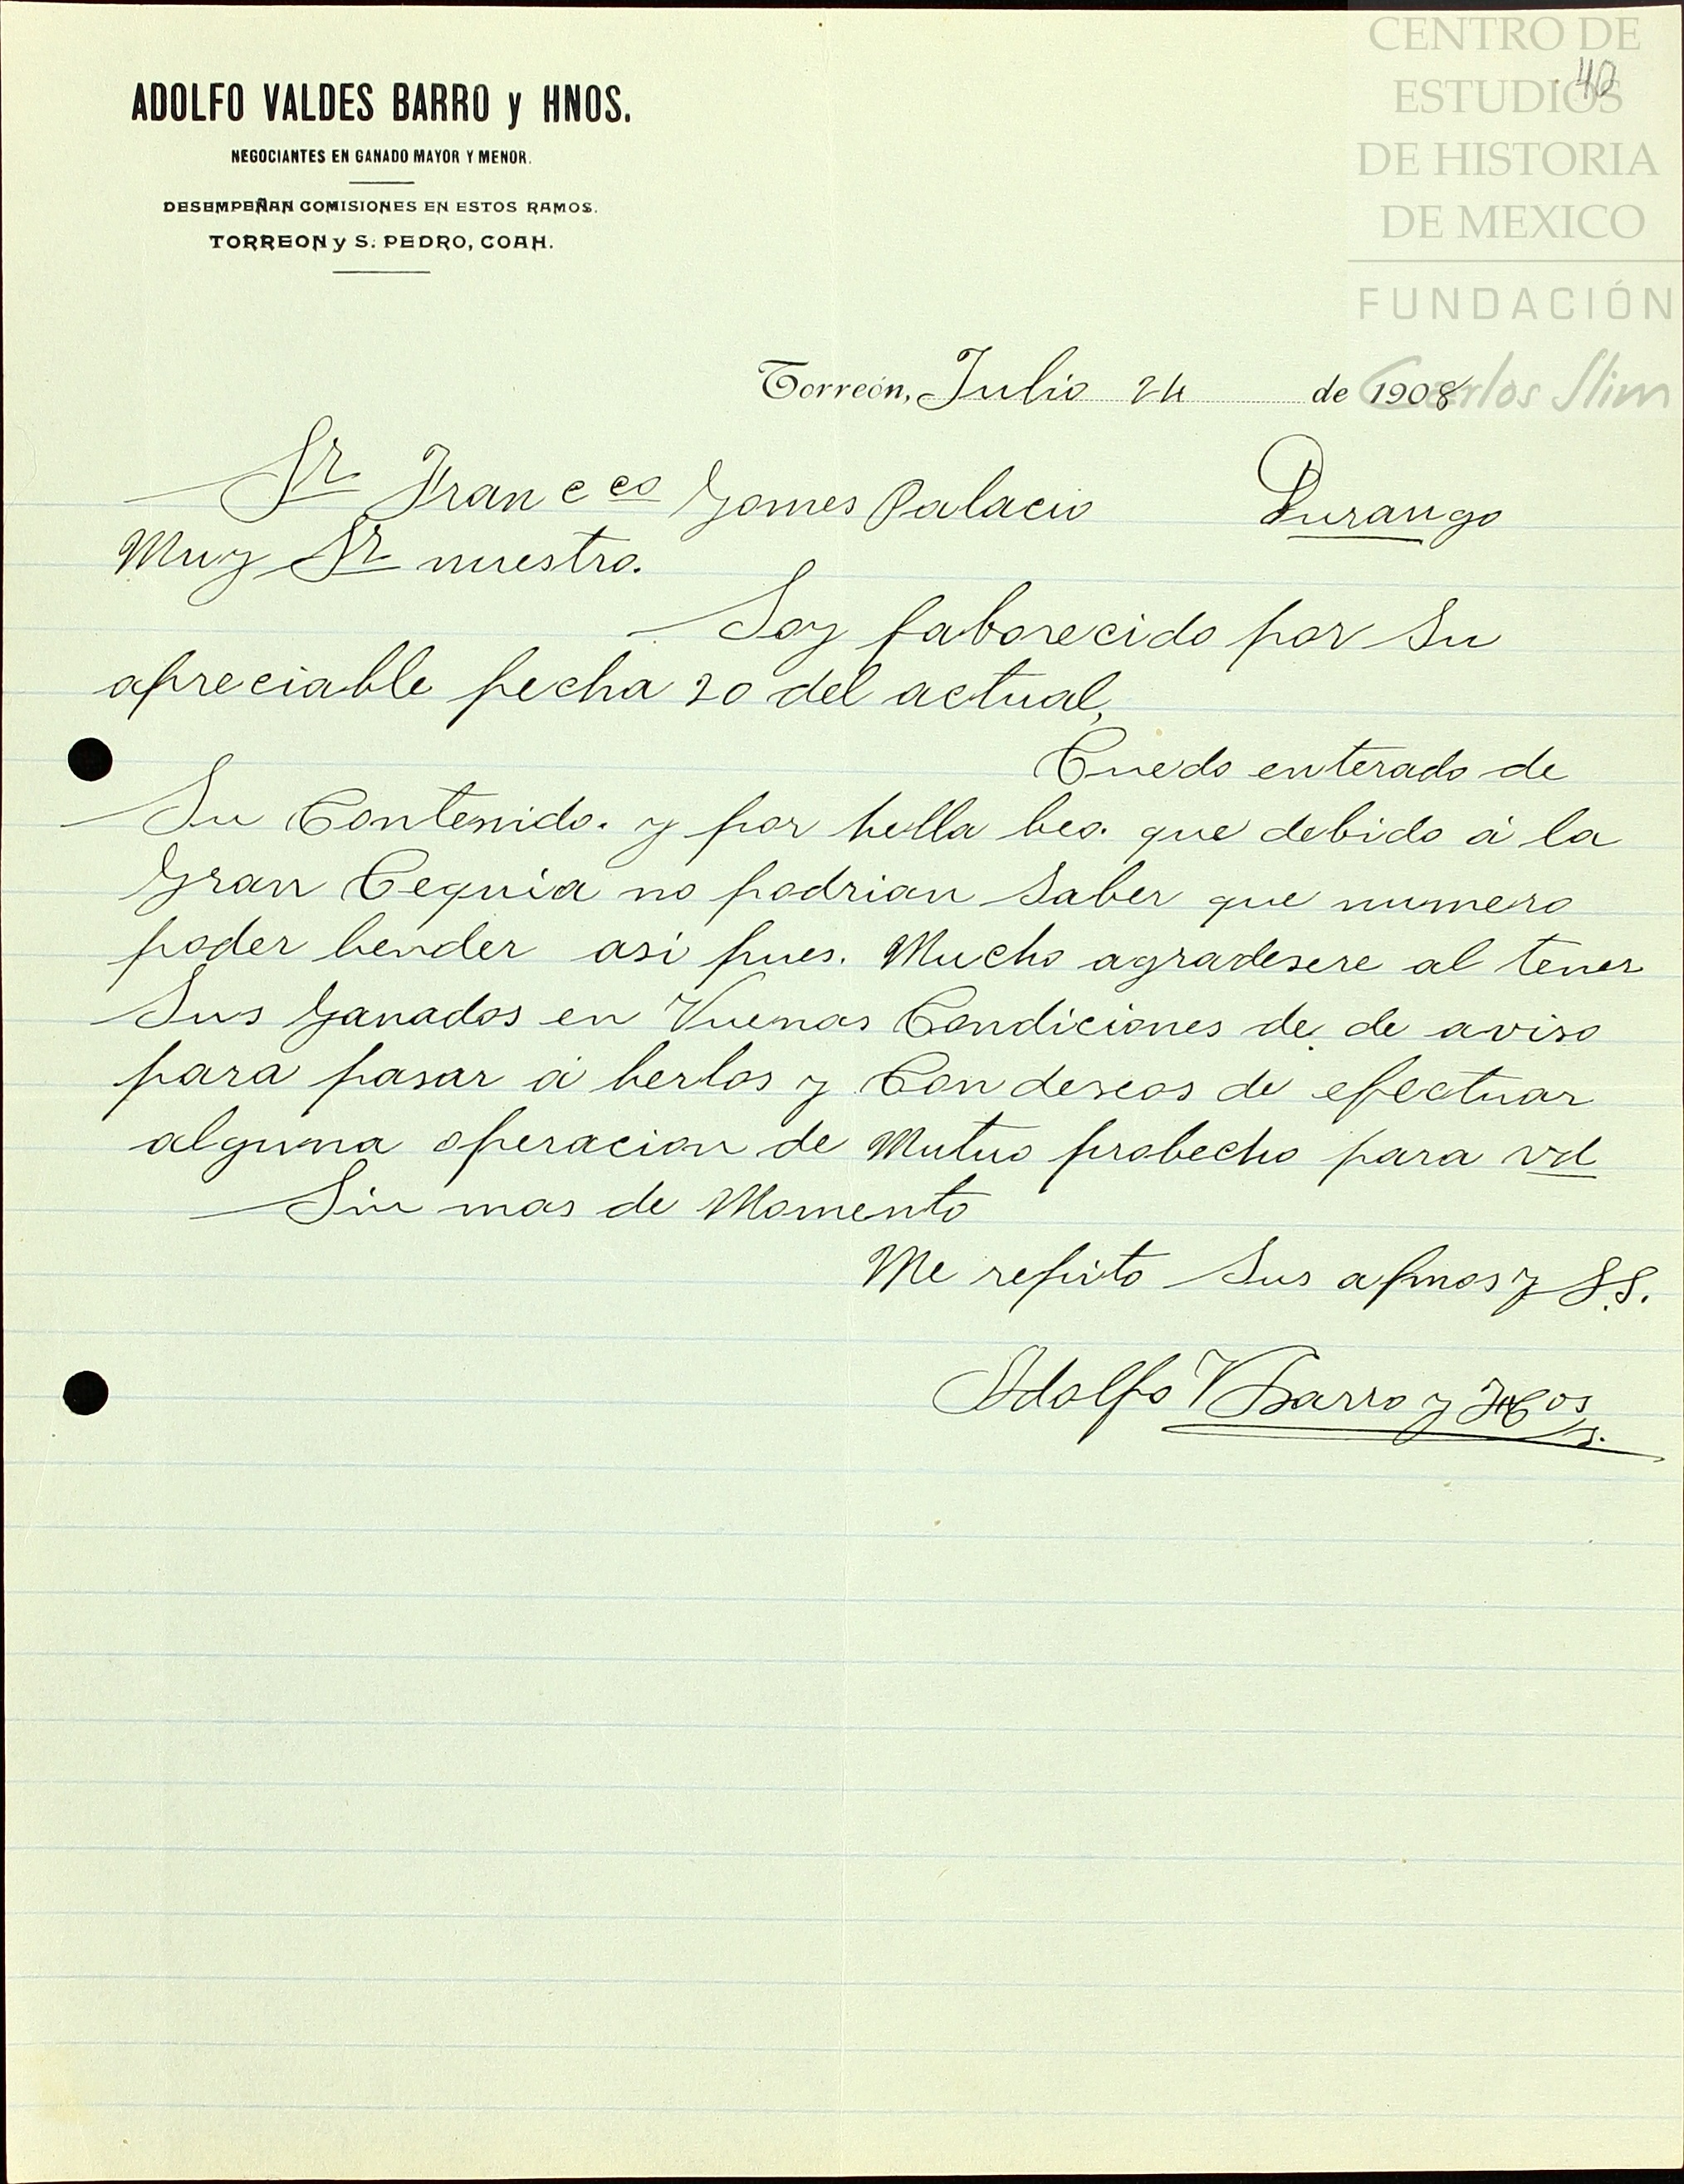 CENTRO DE
ESTUDIOS
DE HISTORIA
DE MEXICO
FUNDACIÓN
Carlos Slim
40
ADOLFO VALDES BARRO y HNOS.
NEGOCIANTES EN GANADO MAYOR Y MENOR.
DESEMPEÑAN COMISIONES EN ESTOS RAMOS.
TORREON y S. PEDRO, COAH.
Torreón, Julio 24 de 1908
Sr Francco Gomes Palacio Durango
Muy Sr nuestro.
Soy faborecido por Su
apreciable fecha 20 del actual,
Cuedo enterado de
Su Contenido. y por hella beo. que debido á la
Gran Cequia no podrian Saber que numero
poder bender asi pues. Mucho agradesere al tener
Sus Ganados en Vuenas Condiciones de de aviso
para pasar á berlos y Con deseos de efectuar
alguna operacion de Mutuo probecho para vd
Sin mas de Momento
Me repito Sus afmos y S.S.
Adolfo V Barro y